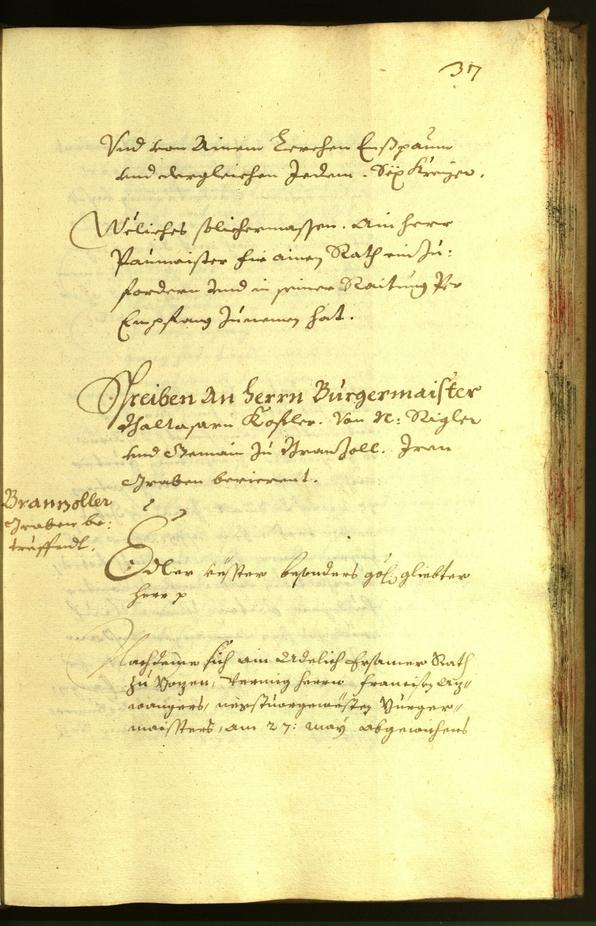 37
Vnd von Ainem Lerchen Enßpaum
vnd dergleichen Jedem. Sÿx Kreizer.
Weliches solichermassen. Ain Herr
Paumaister für ainen Rath ein Zu:
fordern vnd in seiner Raitung Per
Empfang Zunemen hat.
Schreiben An Herrn Burgermaister
Balthasarn Kofler. Von N: Rigler
vnd Gemain Zu Branzoll. Iren
Graben berierent.
Branzoller
Graben be:
treffendt.
Edler vesster besonders gliebter
Herr
Nachdeme sich ain Adelich Ersamer Rath
Zu Bozen, Vermig Herrn Francisen
nexstuorgewesten Burger-
maisters, am 27: May abgewichens